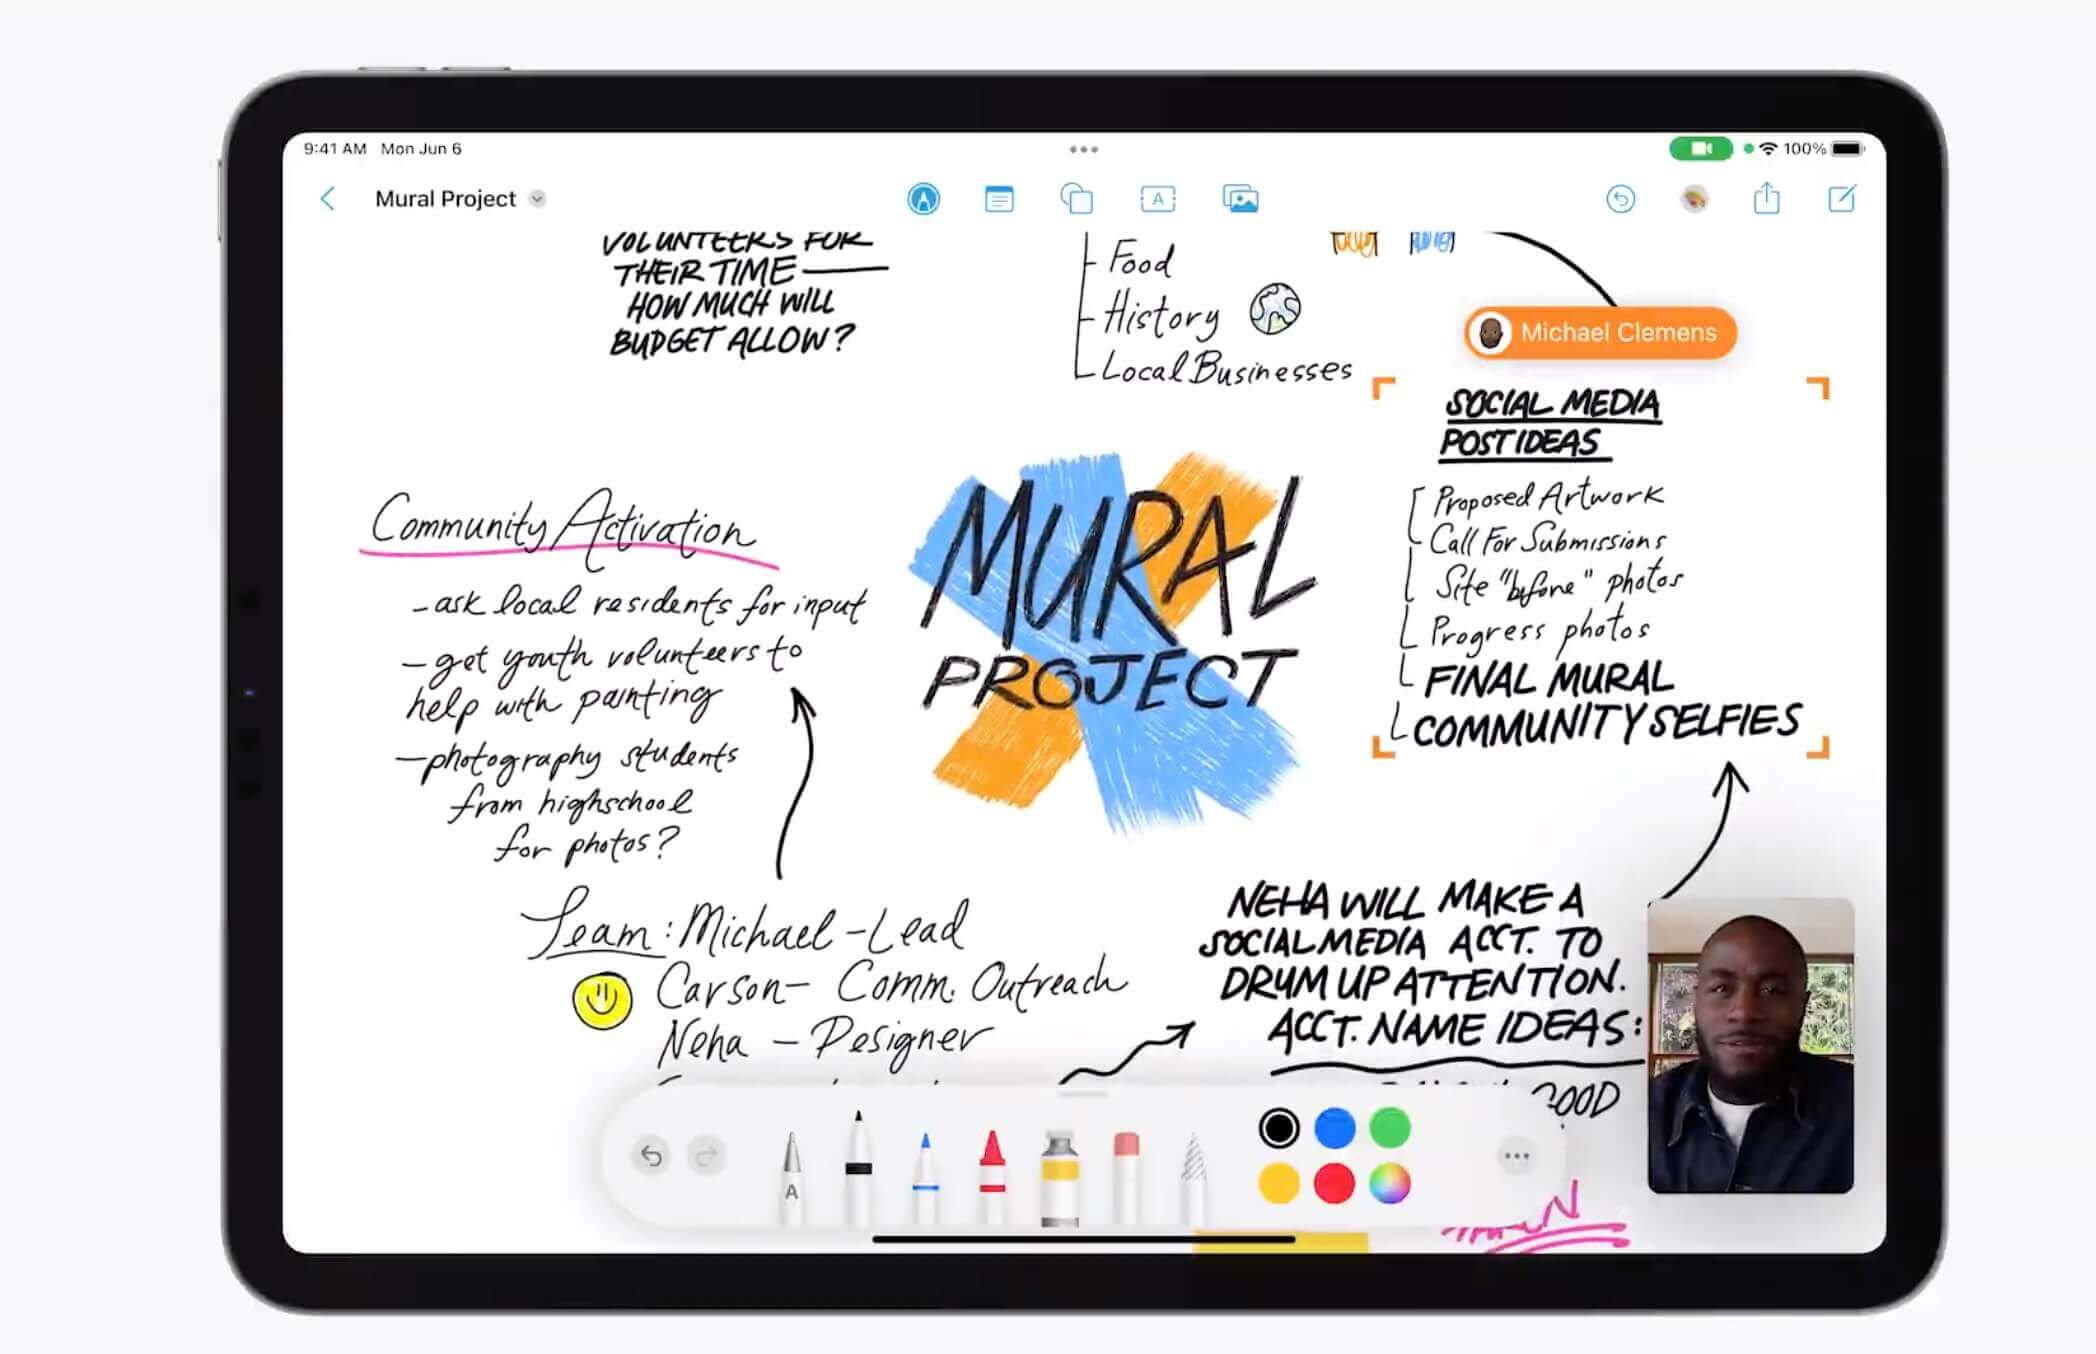 9:41 AM Mon Jun 6
100%
Mural Project
VOLUNTEERS FOR
THEIR TIME —
HOW MUCH WILL
BUDGET ALLOW?
Food
History
Local Businesses
Michael Clemens
SOCIAL MEDIA
POST IDEAS
Proposed Artwork
Call For Submissions
Site "before" photos
Progress photos
FINAL MURAL
COMMUNITY SELFIES
MURAL
PROJECT
Community Activation
- ask local residents for input
- get youth volunteers to
help with painting
- photography students
from highschool
for photos?
Team: Michael - Lead
Carson - Comm. Outreach
Neha - Designer
NEHA WILL MAKE A
SOCIAL MEDIA ACCT. TO
DRUM UP ATTENTION.
ACCT. NAME IDEAS:
A
A